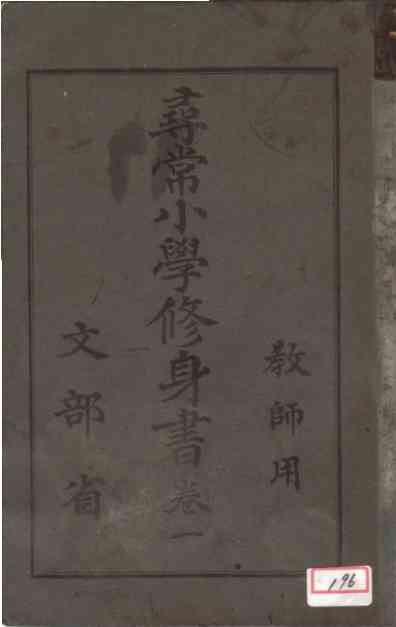 教師用
尋常小學修身書卷一
文部省
196